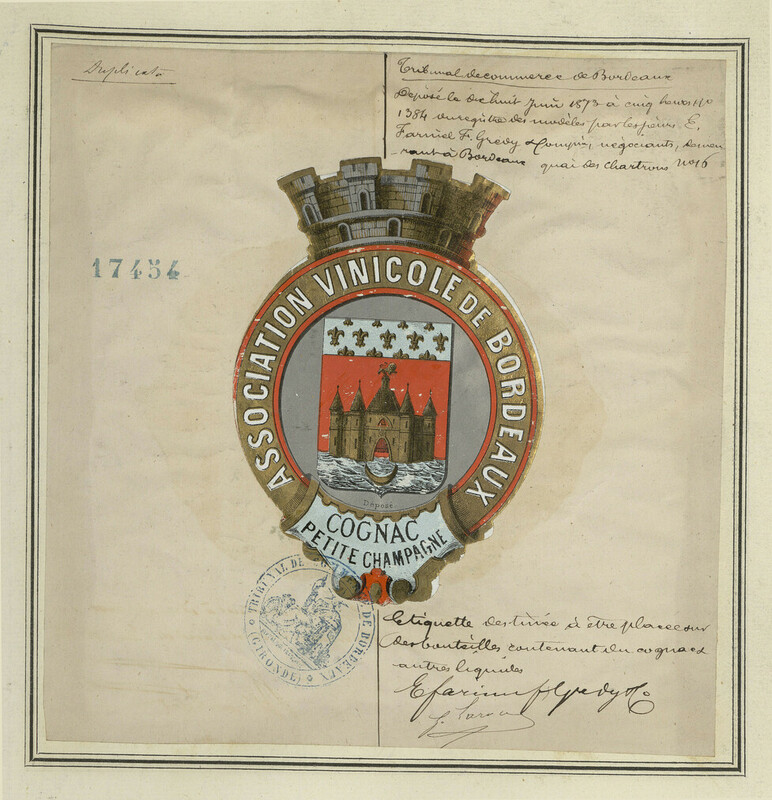 Duplicata
Tribunal de commerce de Bordeaux
Déposé le dix huit Juin 1873 à cinq heures No
1384 du registre des modèles par les sieurs E.
Farinel F. Gredy & Compie, négociants, demeu
rant à Bordeaux quai des Chartrons No 16
17454
ASSOCIATION VINICOLE DE BORDEAUX
Déposé
COGNAC
PETITE CHAMPAGNE
TRIBUNAL DE DE BORDEAUX
(GIRONDE)
Etiquette destinée à être placée sur
des bouteilles contenant du cognac &
autres liquides